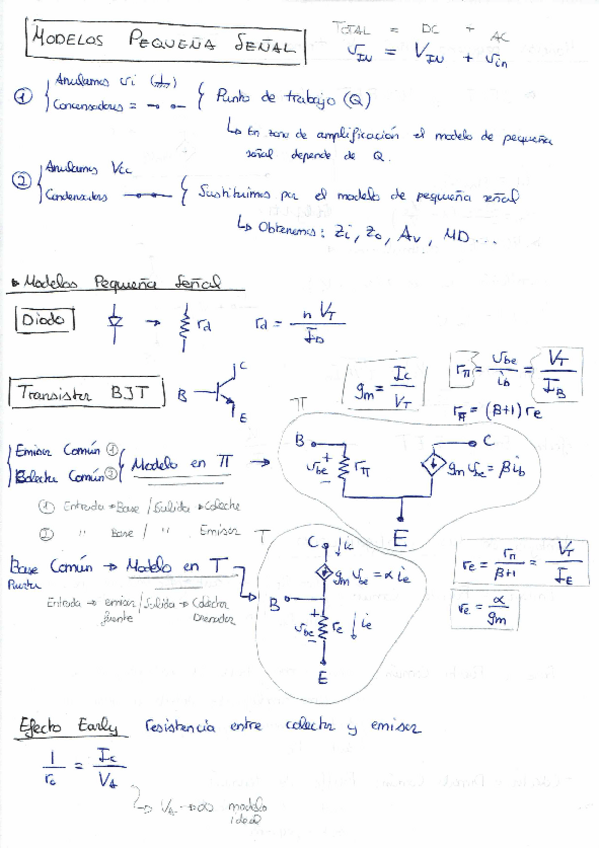 MODELOS PEQUEÑA SEÑAL
TOTAL = DC + AC
v_IN = V_IN + v_in
① Anulamos vi
Condensadores = { Punto de trabajo (Q)
↳ En zona de amplificación el modelo de pequeña
señal depende de Q.
② Anulamos Vcc
Condensadores { Sustituimos por el modelo de pequeña señal
↳ Obtenemos: Zi, Zo, Av, MD...
Modelos Pequeña Señal
Diodo → rd rd = n V_T / I_D
Transistor BJT B C E
gm = Ic / V_T
rπ = vbe / ib = V_T / I_B
rπ = (β+1) re
Emisor Común ①
Colector Común ② { Modelo en π →
π B + vbe - rπ gm vbe = β ib C E
① Entrada → Base / Salida → Colector
② " Base / " Emisor
Base Común → Modelo en T
Puerta
Entrada → emisor / Salida → Colector
fuente Drenador
T C ic gm vbe = α ie B + vbe - re ie E
re = rπ / β+1 = V_T / I_E
re = α / gm
Efecto Early resistencia entre colector y emisor
1 / rc = Ic / V_A
↳ V_A → ∞ modelo
ideal